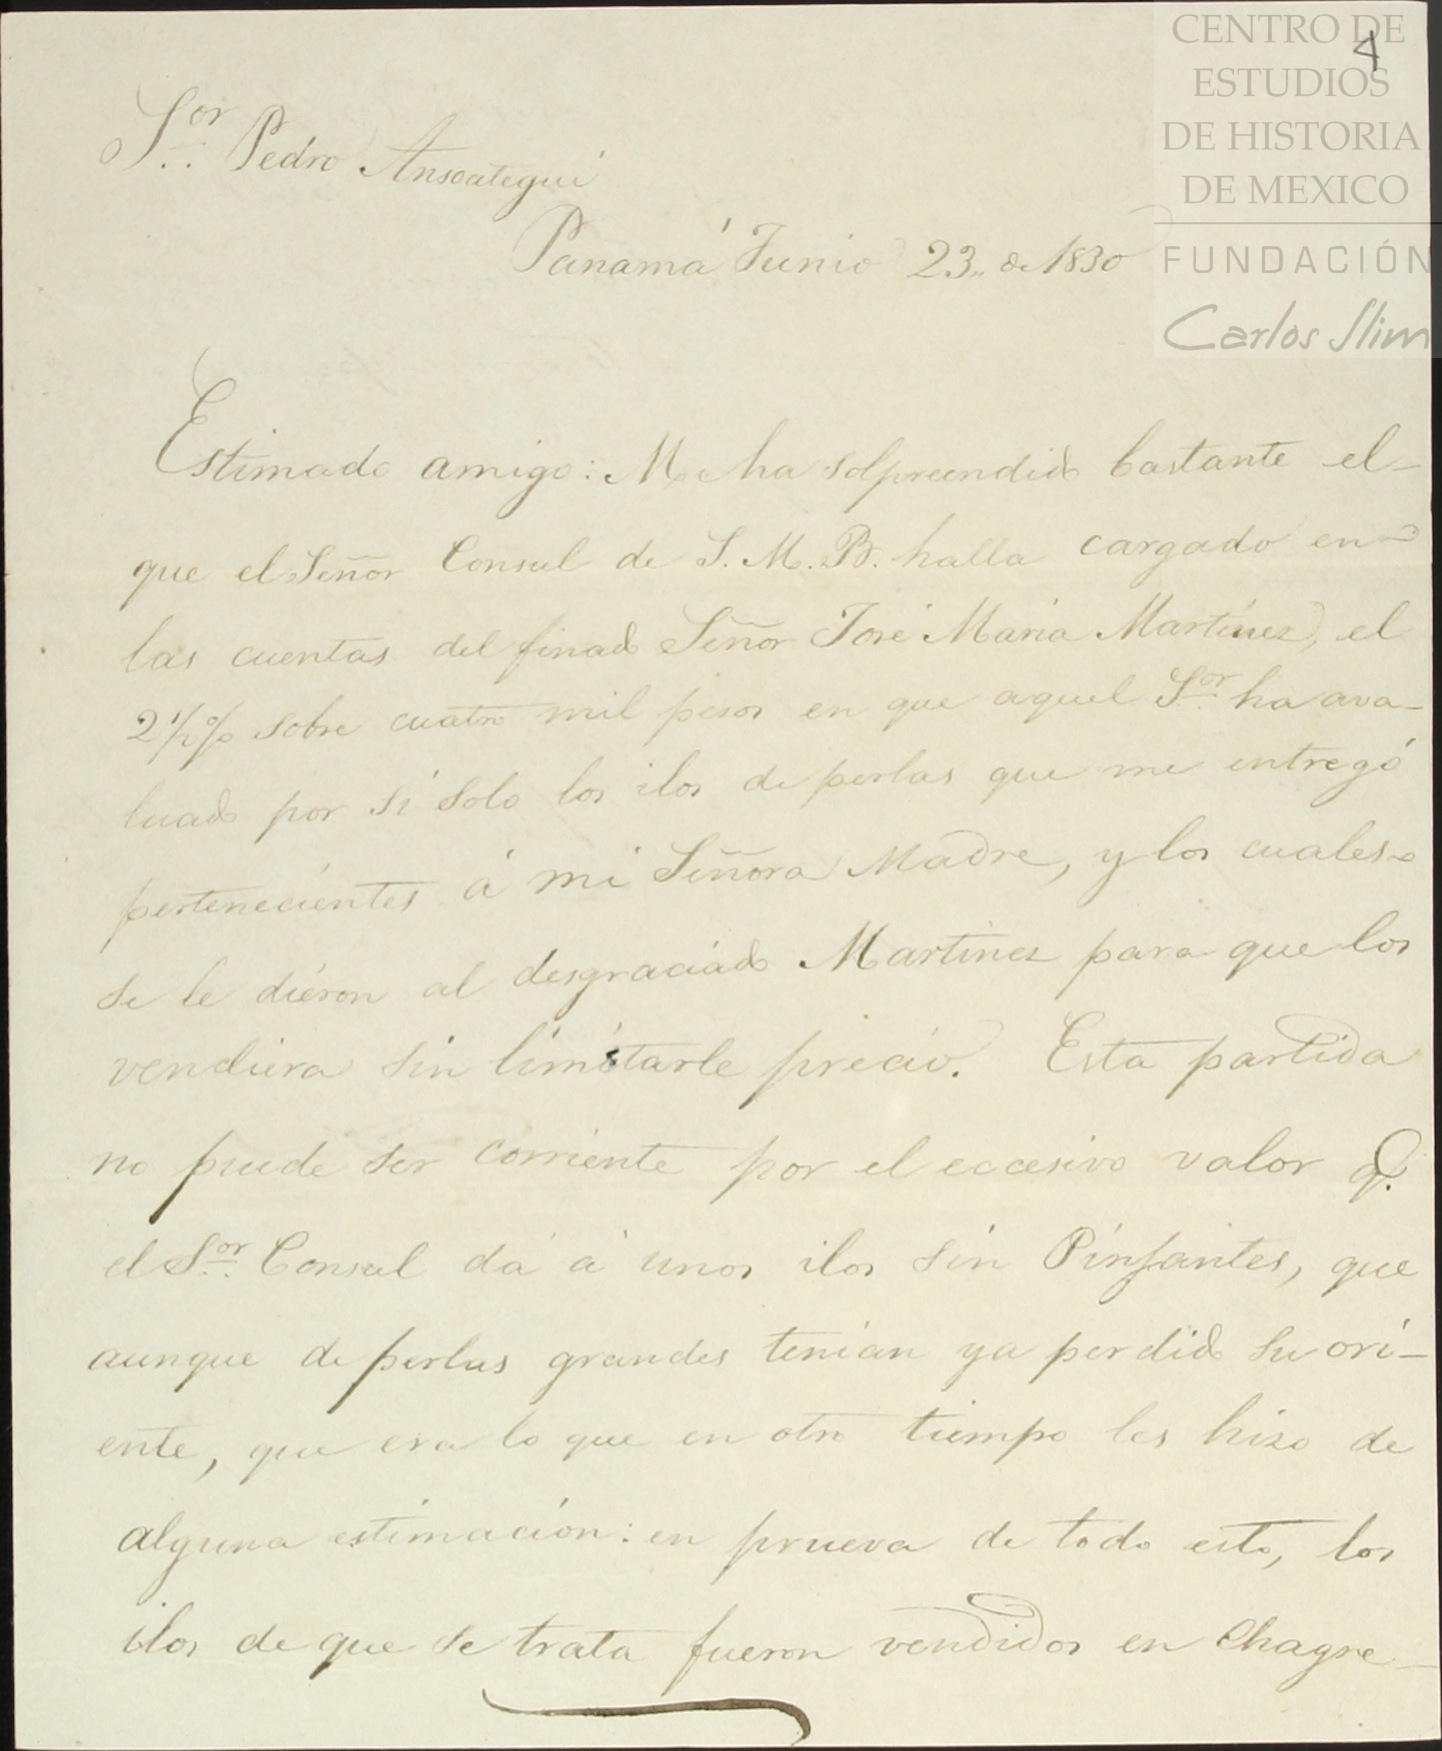 CENTRO DE
ESTUDIOS
DE HISTORIA
DE MEXICO
FUNDACIÓN
Carlos Slim
4
Sor. Pedro Ansoategui
Panamá Junio 23,, de 1830
Estimado amigo: Me ha solpreendido bastante el
que el Señor Consul de S. M. B. halla cargado en
las cuentas del finado Señor José Maria Martinez, el
2 1/2 % sobre cuatro mil pesos en que aquel Sor. ha ava-
luado por sí solo los ilos de perlas que me entregó
pertenecientes á mi Señora Madre, y los cuales
se le diéron al desgraciado Martinez para que los
vendiera sin limitarle precio. Esta partida
no puede ser corriente por el eccesivo valor q.
el Sor. Consul dá á unos ilos sin Pinjantes, que
aunque de perlas grandes tenian ya perdido su ori-
ente, que era lo que en otro tiempo les hizo de
alguna estimación: en prueva de todo esto, los
ilos de que se trata fueron vendidos en Chagre